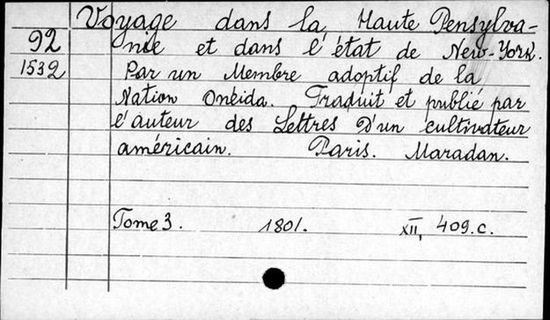 Voyage dans la Haute Pensylva-
92 nie et dans l'état de New-York.
1532 Par un Membre adoptif de la
Nation Onéida. Traduit et publié par
l'auteur des Lettres d'un cultivateur
américain. Paris. Maradan.
Tome 3. 1801. XII, 409.c.